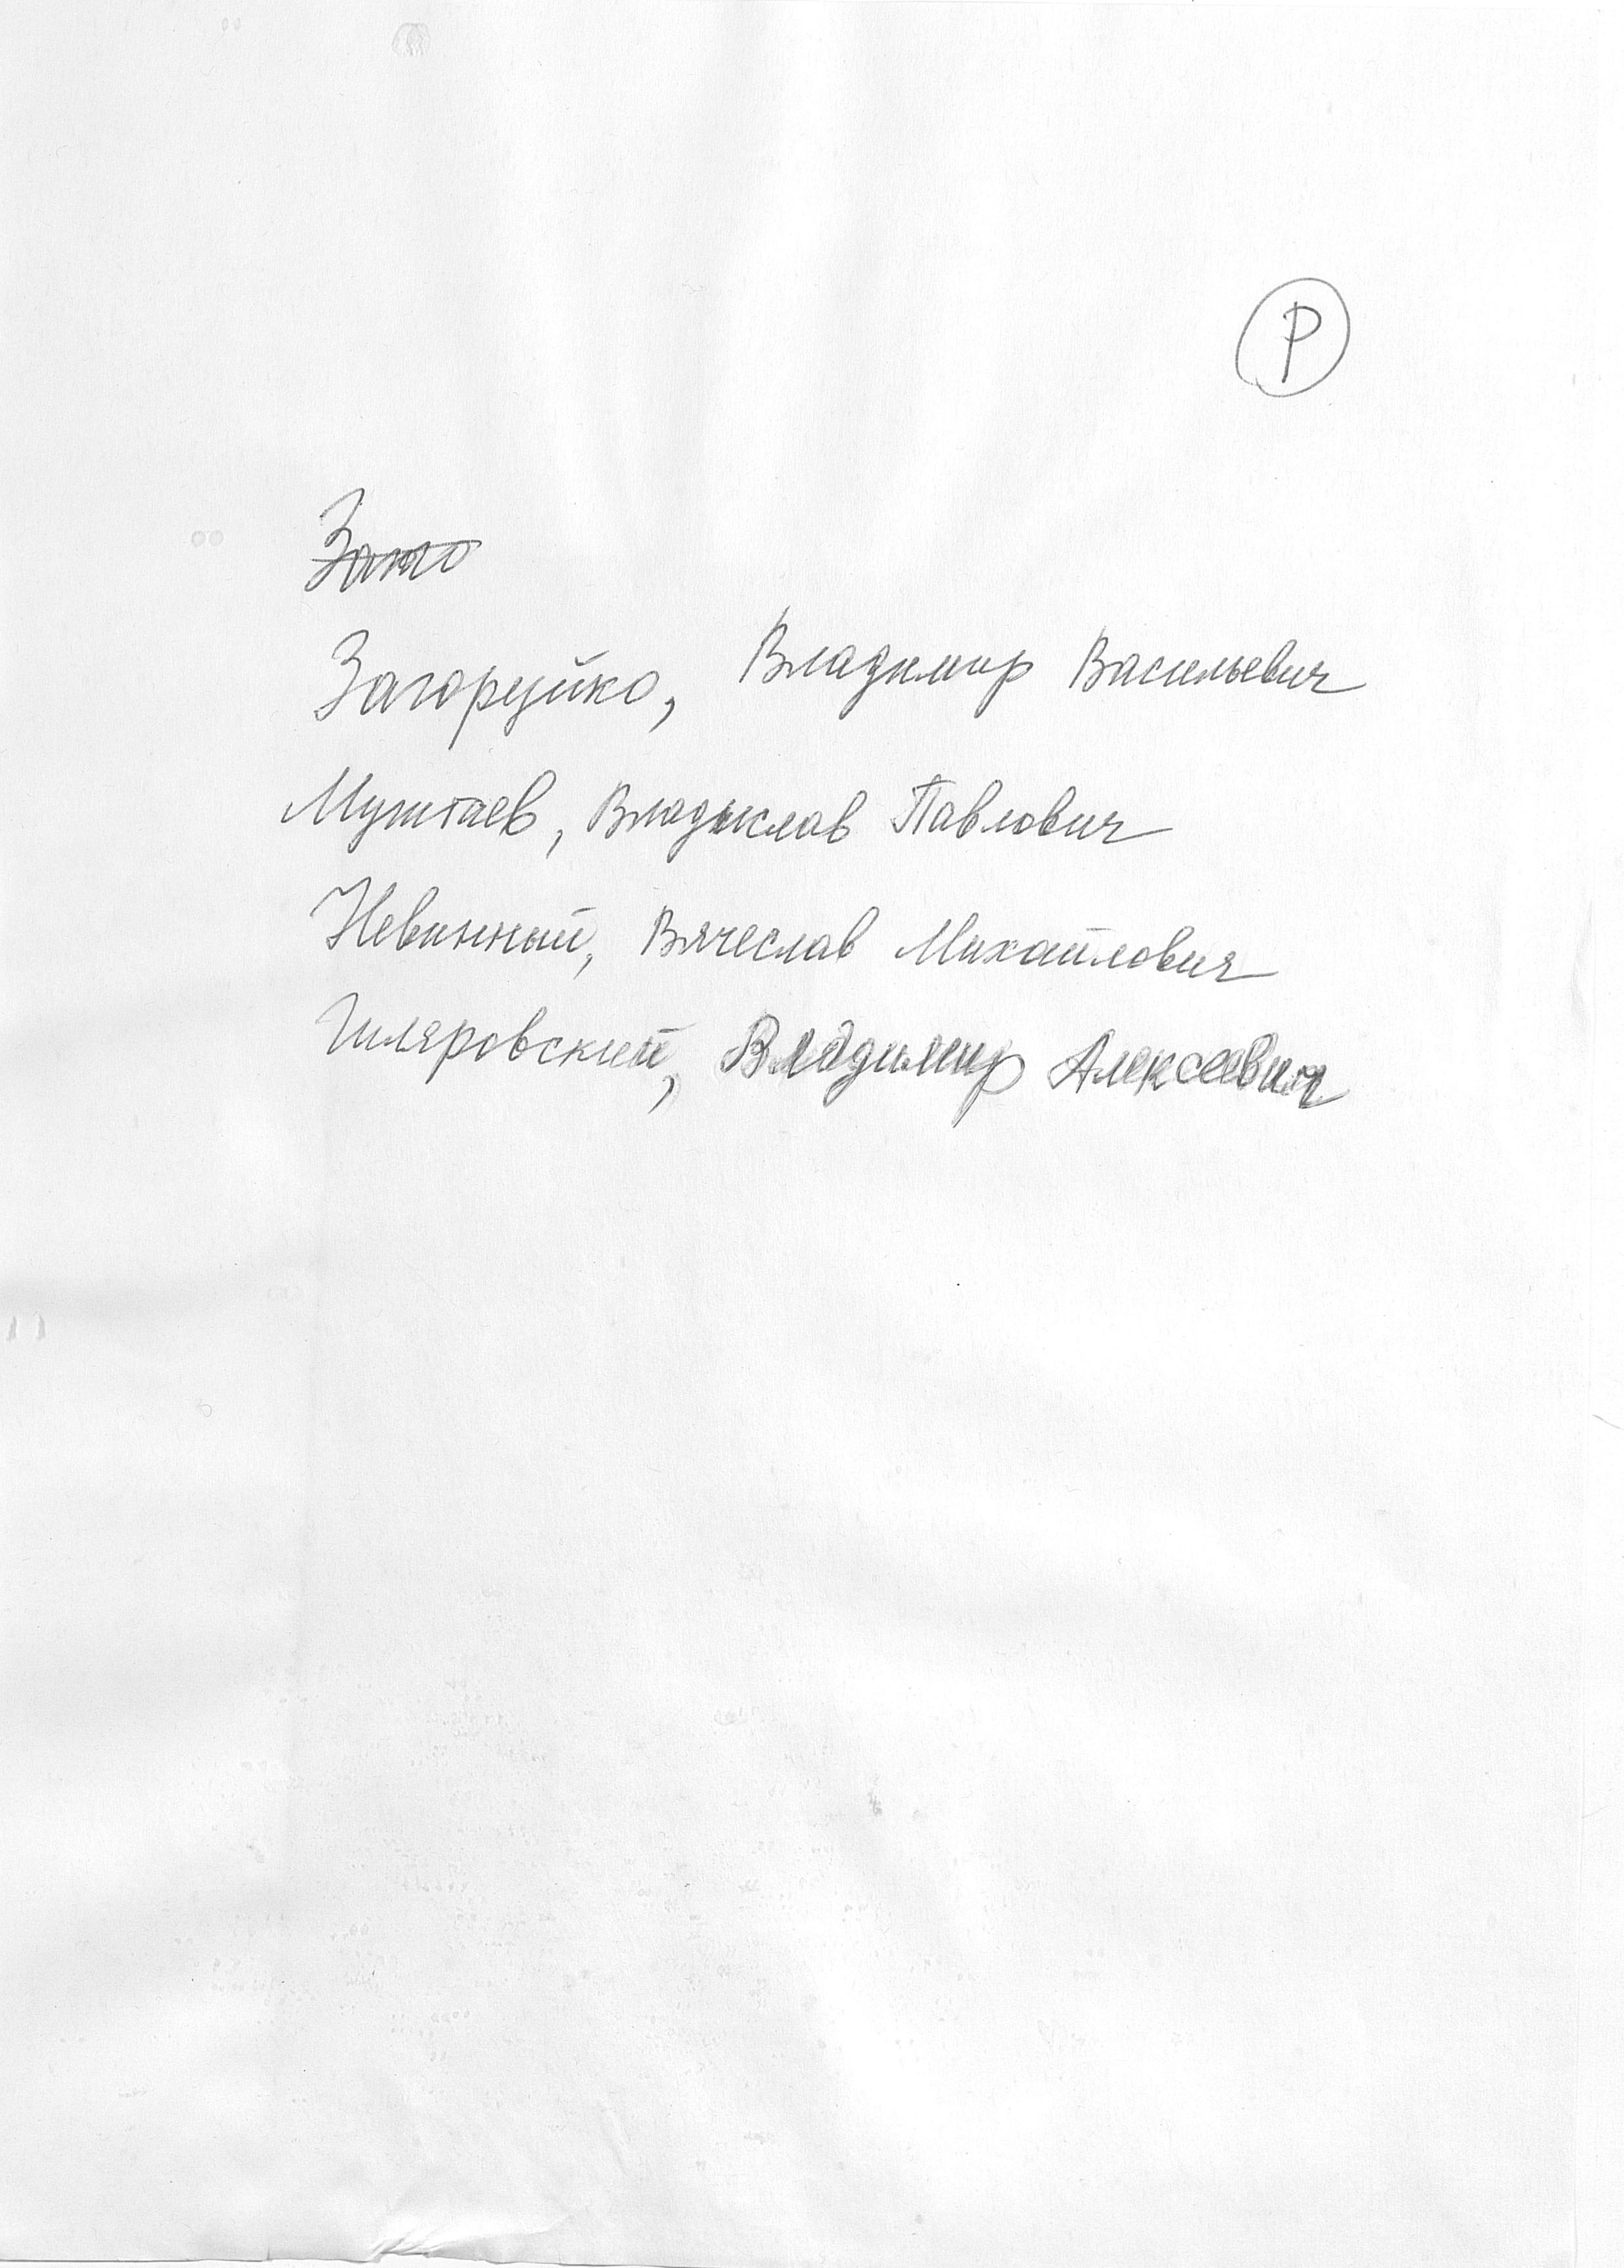 Р
Загоруйко, Владимир Васильевич
Муштаев, Владислав Павлович
Невинный, Вячеслав Михайлович
Гиляровский, Владимир Алексеевич